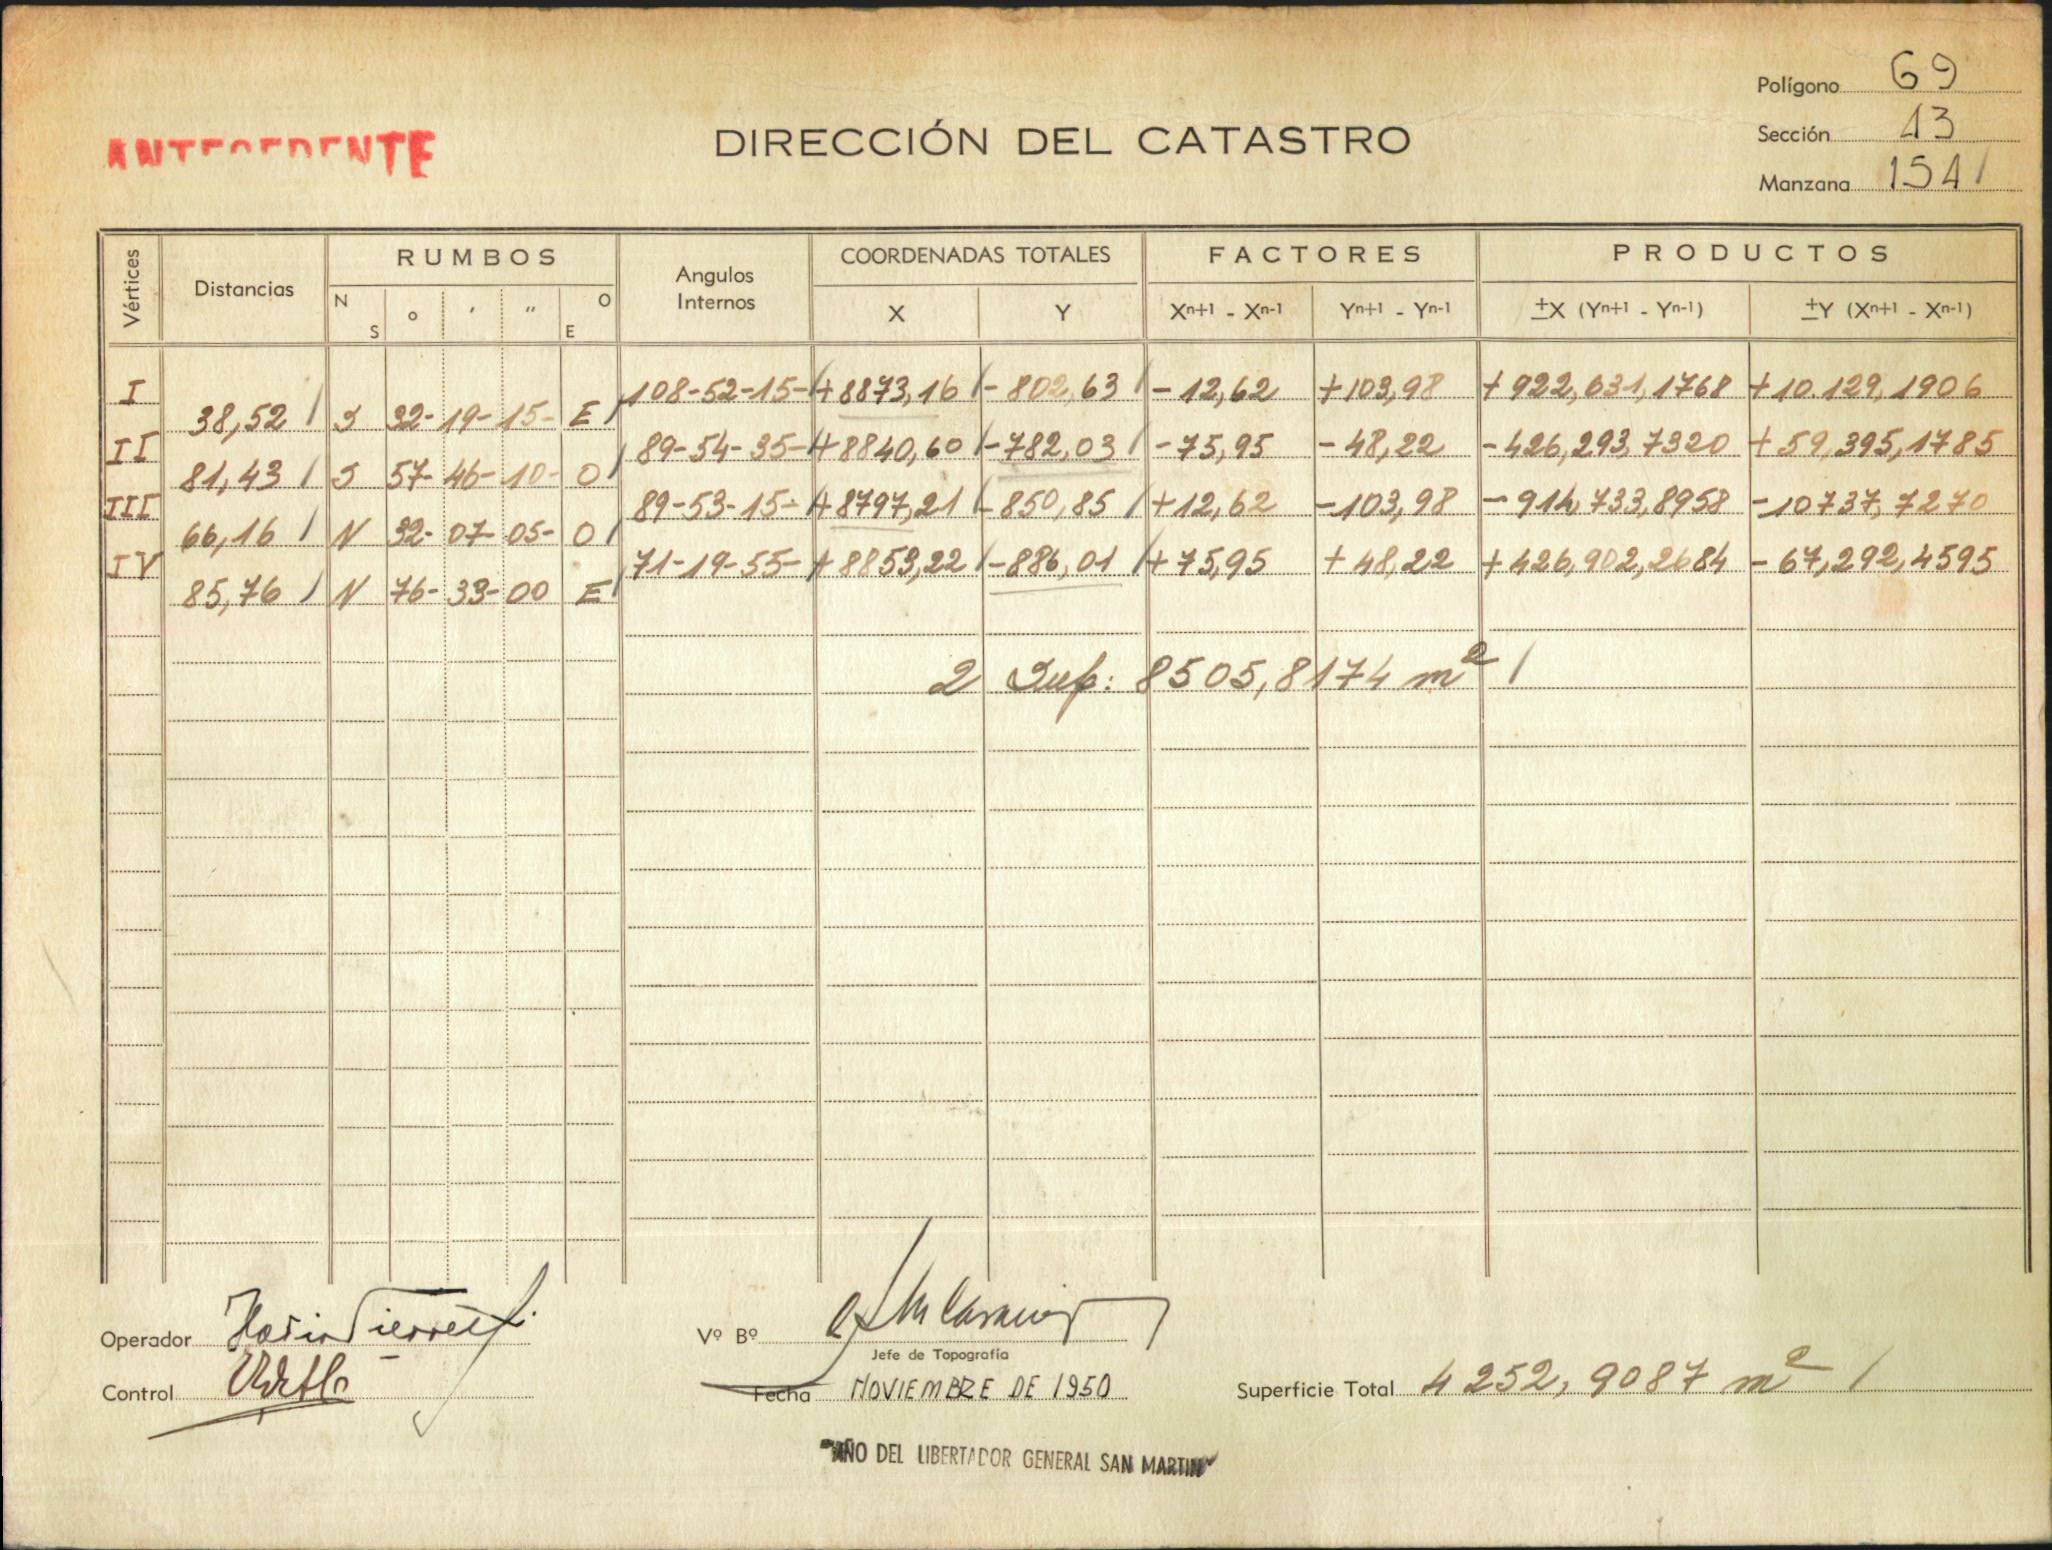 Polígono 69
ANTECEDENTE
DIRECCIÓN DEL CATASTRO
Sección 13
Manzana 154 /
Vértices Distancias RUMBOS Angulos Internos COORDENADAS TOTALES FACTORES PRODUCTOS
N S ° ' " O E X Y Xⁿ⁺¹ - Xⁿ⁻¹ Yⁿ⁺¹ - Yⁿ⁻¹ ±X (Yⁿ⁺¹ - Yⁿ⁻¹) ±Y (Xⁿ⁺¹ - Xⁿ⁻¹)
I 108-52-15- +8873,16 / - 802,63 / - 12,62 +103,98 + 922,631,1768 +10.129,1906
38,52 / S 32- 19- 15- E /
II 89-54-35- +8840,60 / -782,03 / -75,95 -48,22 -426,293,7320 +59,395,1785
81,43 / S 57- 46- 10- O /
III 89-53-15- +8797,21 / -850,85 / +12,62 -103,98 -914,733,8958 -10737,7270
66,16 / N 32- 07- 05- O /
IV 71-19-55- +8853,22 / -886,01 / +75,95 +48,22 +426,902,2684 -67,292,4595
85,76 / N 76- 33- 00 E /
2 Sup: 8505,8174 m² /
Operador
Vº Bº
Jefe de Topografía
Control
Fecha NOVIEMBRE DE 1950
Superficie Total 4252,9087 m² /
"AÑO DEL LIBERTADOR GENERAL SAN MARTIN"